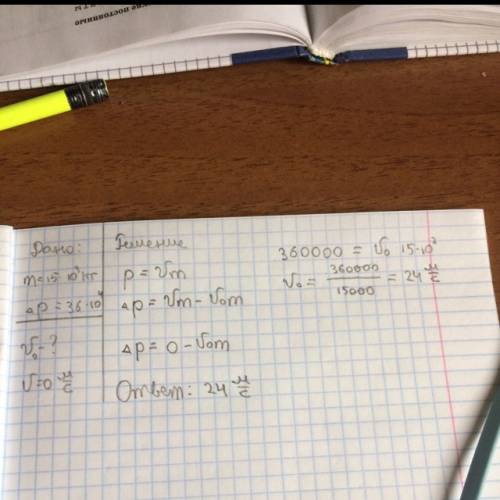 кие постоянные
Дано:
m=15·10³кг
Δp=36·10⁴
v₀-?
v=0 м/с
Решение
p=vm
Δp=vm-v₀m
Δp=0-v₀m
Ответ: 24 м/с
360000=v₀ 15·10³
v₀=360000/15000=24 м/с